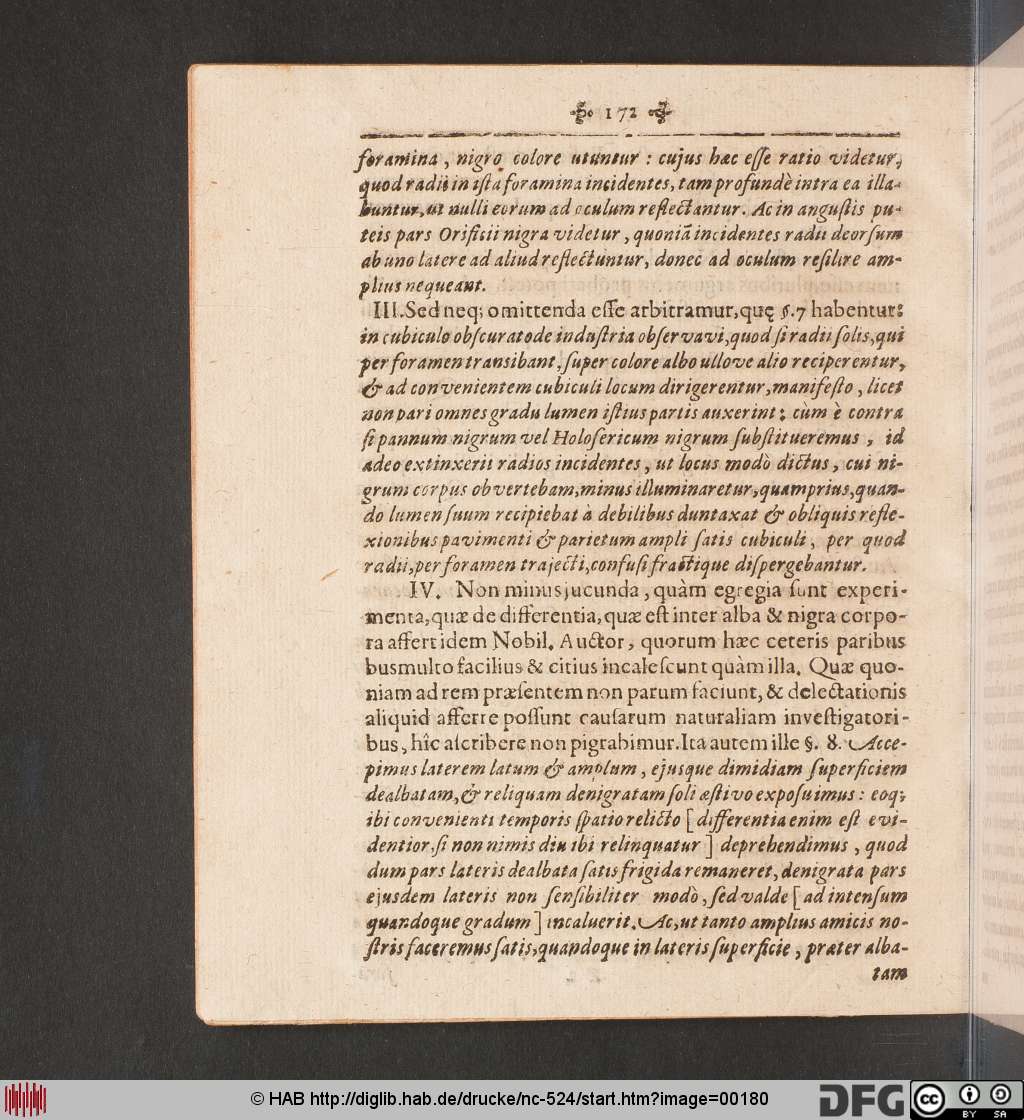 172
foramina, nigro colore utuntur: cujus hæc eſſe ratio videtur,
quod radii in iſta foramina incidentes, tam profundè intra ea illa-
buntur, ut nulli eorum ad oculum reflectantur. Ac in anguſtis pu-
teis pars Orificii nigra videtur, quoniã incidentes radii deorſum
ab uno latere ad aliud reflectuntur, donec ad oculum reſilire am-
plius nequeant.
III. Sed neq; omittenda eſſe arbitramur, quę §.7 habentur:
in cubiculo obſcurato de induſtria obſervavi, quod ſi radii ſolis, qui
per foramen transibant, ſuper colore albo ullove alio reciperentur,
& ad convenientem cubiculi locum dirigerentur, manifeſto, licet
non pari omnes gradu lumen iſtius partis auxerint; cùm è contra
ſi pannum nigrum vel Holoſericum nigrum ſubſtitueremus, id
adeo extinxerit radios incidentes, ut locus modò dictus, cui ni-
grum corpus obvertebam, minus illuminaretur, quam prius, quan-
do lumen ſuum recipiebat à debilibus duntaxat & obliquis refle-
xionibus pavimenti & parietum ampli ſatis cubiculi, per quod
radii, per foramen trajecti, confuſi fractique diſpergebantur.
IV. Non minus jucunda, quàm egregia ſunt experi-
menta, quæ de differentia, quæ eſt inter alba & nigra corpo-
ra affert idem Nobil. Auctor, quorum hæc ceteris paribus
busmulto facilius & citius incaleſcunt quàm illa. Quæ quo-
niam ad rem præſentem non parum faciunt, & delectationis
aliquid afferre poſſunt cauſarum naturaliam inveſtigatori-
bus, hîc aſcribere non pigrabimur. Ita autem ille §. 8. Acce-
pimus laterem latum & amplum, ejusque dimidiam ſuperficiem
dealbatam, & reliquam denigratam ſoli æſtivo expoſuimus: eoq;
ibi convenienti temporis ſpatio relicto [ differentia enim eſt evi-
dentior, ſi non nimis diu ibi relinquatur ] deprehendimus, quod
dum pars lateris dealbata ſatis frigida remaneret, denigrata pars
ejusdem lateris non ſenſibiliter modò, ſed valde [ ad intenſum
quandoque gradum ] incaluerit. Ac, ut tanto amplius amicis no-
ſtris faceremus ſatis, quandoque in lateris ſuperficie, præter alba-
tam
© HAB http://diglib.hab.de/drucke/nc-524/start.htm?image=00180
DFG
cc BY SA